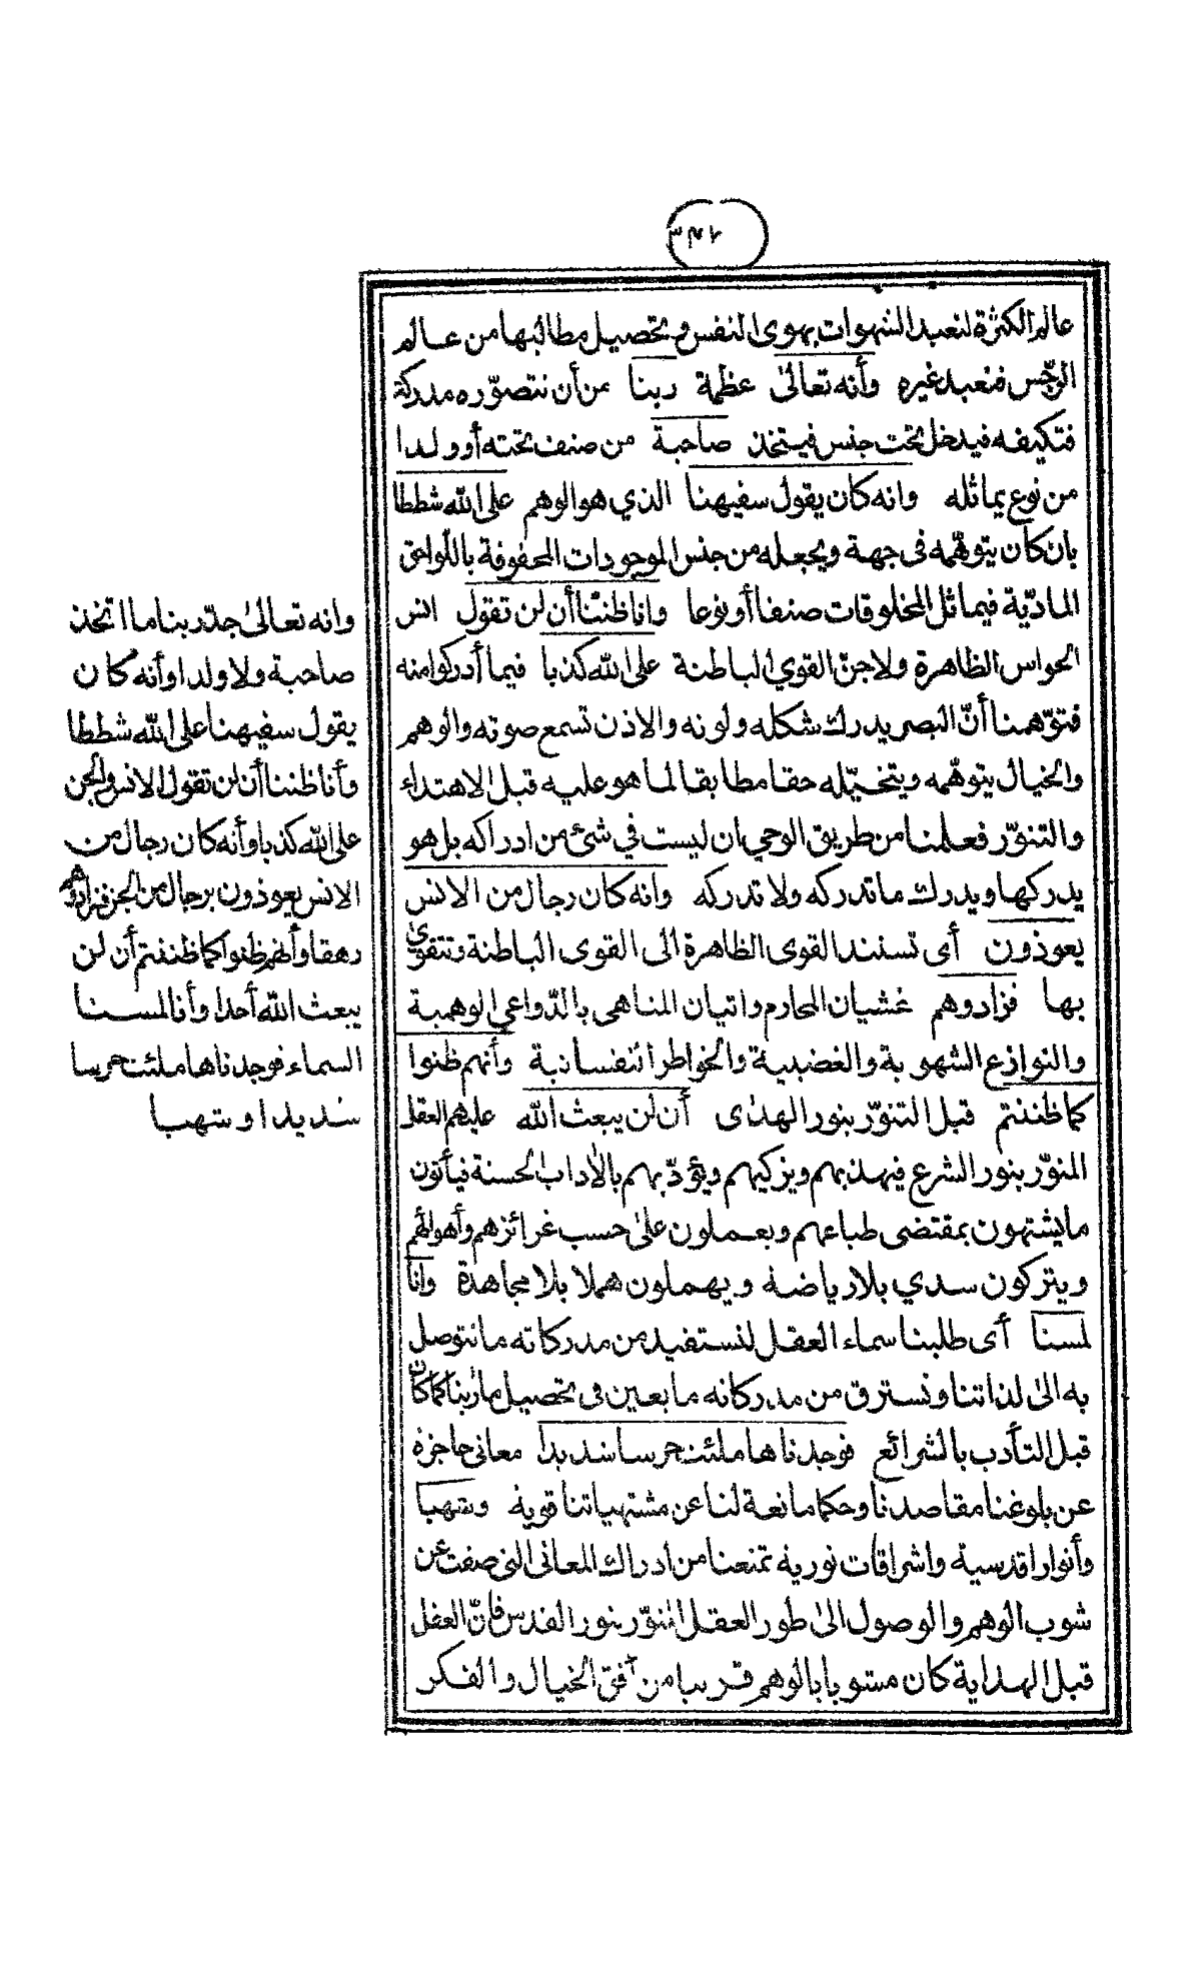 ٣٤٢
عالم الكثرة لنعبد الشهوات بهوى النفس وتحصيل مطالبها من عالم
الرجّس فنعبد غيره وأنه تعالى عظمة ربنا من أن نتصوّره مدركة
فتكيفه فيدخل تحت جنس فيتخذ صاحبة من صنف تحته أو ولدا
من نوع يماثله وانه كان يقول سفيهنا الذي هو الوهم على الله شططا
بان كان يتوهّمه في جهة ويجعله من جنس الموجودات المحفوفة باللّواحق
الماديّة فيماثل المخلوقات صنفا أو نوعا وانا ظننّا أن لن تقول انس
الحواس الظاهرة ولا جنّ القوي الباطنة على الله كذبا فيما أدركوا منه
فتوّهمنا أنّ البصر يدرك شكله ولونه والاذن تسمع صوته والوهم
والخيال يتوهّمه ويتخيّله حقا مطابقا لما هو عليه قبل الاهتداء
والتنوّر فعلمنا من طريق الوحي ان ليست في شئ من ادراكه بل هو
يدركها ويدرك ما تدركه ولا تدركه وانه كان رجال من الانس
يعوذون أى تستند القوى الظاهرة الى القوى الباطنة وتتقوي
بها فزادوهم غشيان المحارم واتيان المناهى بالدّواعي الوهمية
والنوازع الشهوية والغضبية والخواطر النفسانية وأنهم ظنوا
كما ظننتم قبل التنوّر بنور الهدى أن لن يبعث الله عليهم العقل
المنوّر بنور الشرع فيهذبهم ويزكيهم ويؤدّبهم بالآداب الحسنة فيأتون
ما يشتهون بمقتضى طباعهم ويعملون على حسب غرائزهم وأهوائهم
ويتركون سدي بلا رياضة ويهملون هملا بلا مجاهدة وانا
لمسنا أى طلبنا سماء العقل لنستفيد من مدركاته ما نتوصل
به الى لذاتنا ونسترق من مدركاته ما يعين في تحصيل مآربنا كما كان
قبل التأدب بالشرائع فوجدناها ملئت حرسا شديدا معاني حاجزة
عن بلوغنا مقاصدنا وحكما مانعة لنا عن مشتهياتنا قوية وشهبا
وأنوارا قدسية واشراقات نورية تمنعنا من ادراك المعاني التي صفت عن
شوب الوهم والوصول الى طور العقل المنوّر بنور القدس فانّ العقل
قبل الهداية كان مشوبا بالوهم قريبا من أفق الخيال والفكر
وانه تعالى جدّ ربنا ما اتخذ
صاحبة ولا ولدا وأنه كان
يقول سفيهنا على الله شططا
وأنا ظننا أن لن تقول الانس والجن
على الله كذبا وأنه كان رجال من
الانس يعوذون برجال من الجن فزادوهم
رهقا وأنهم ظنوا كما ظننتم أن لن
يبعث الله أحدا وأنا لمسنا
السماء فوجدناها ملئت حرسا
شديدا وشهبا